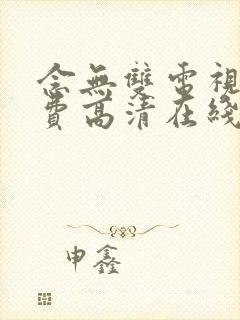 念無雙電視
費高清在綫
申鑫